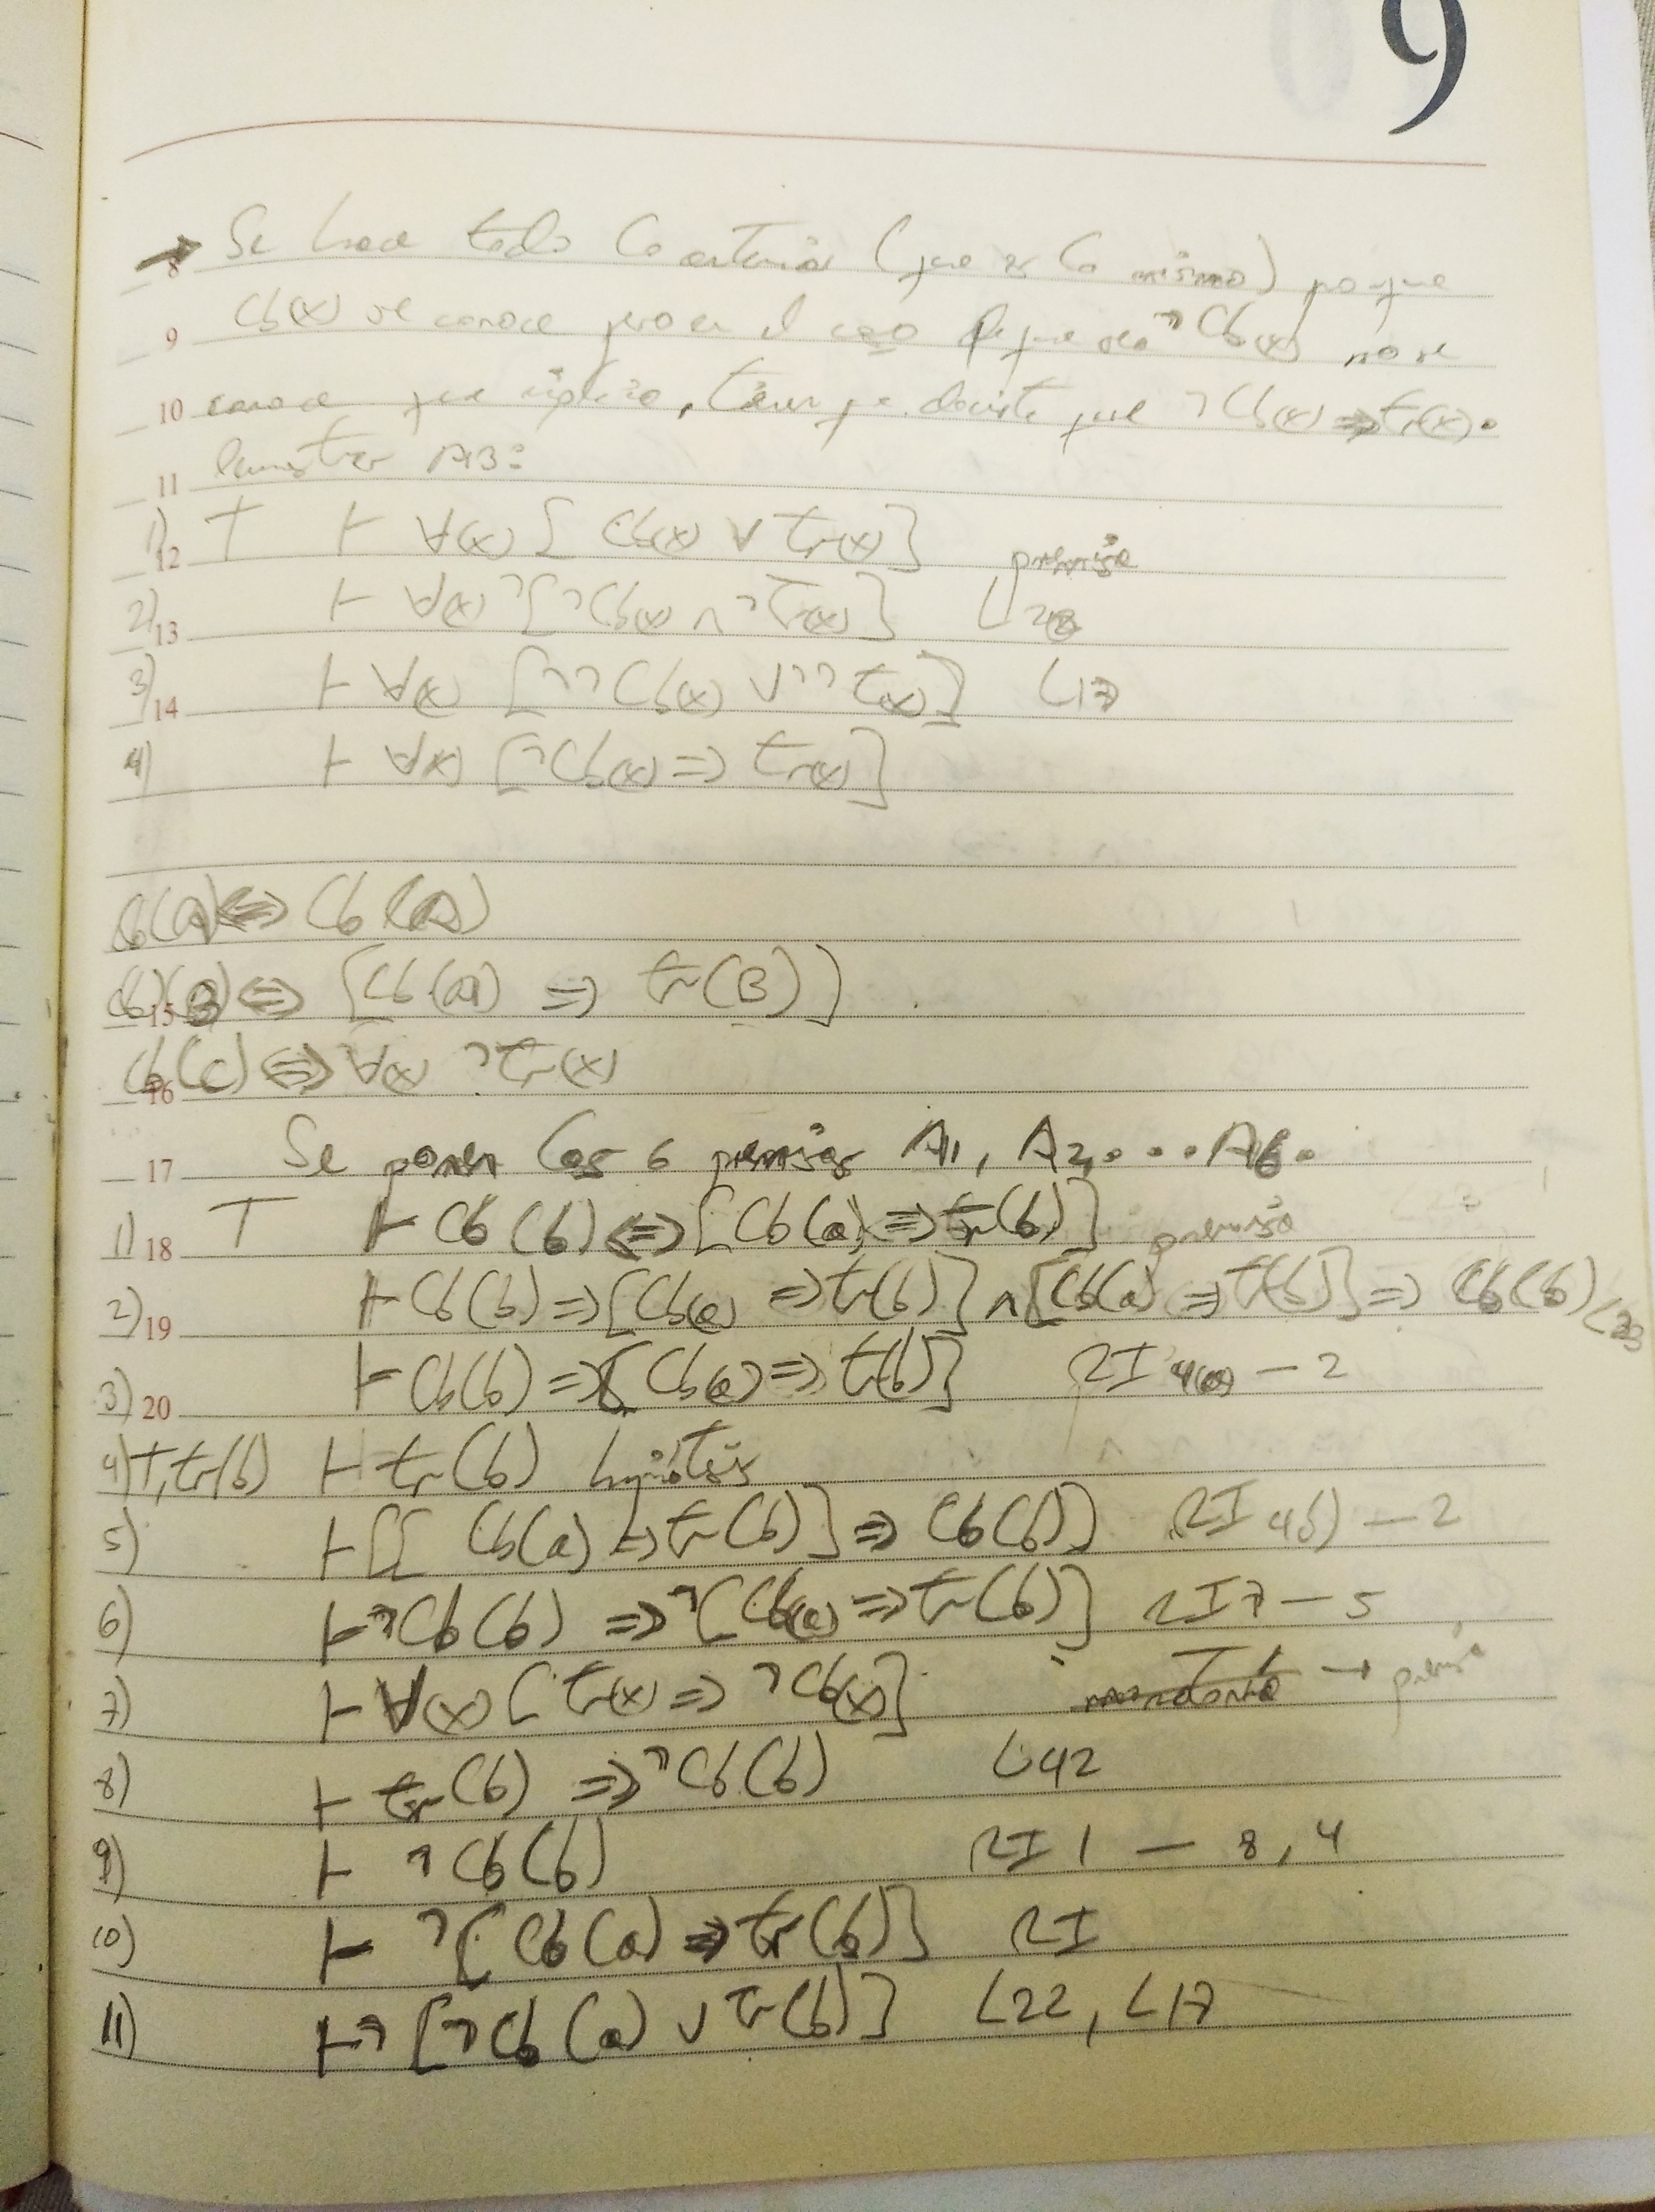 9
→ 8 Se hace todo lo anterior (que es lo mismo) porque
9 Cb(x) se conoce pero en el caso de que sea ¬Cb(x) no se
10 conoce que implica, tiene que decirte que ¬Cb(x) ⇒ tr(x).
11 Demostrar A3:
1) 12 T ⊢ ∀(x) [Cb(x) ∨ tr(x)] premisa
2) 13 ⊢ ∀(x) ¬[¬Cb(x) ∧ ¬tr(x)] L28
3) 14 ⊢ ∀(x) [¬¬Cb(x) ∨ ¬¬t(x)] L17
4) ⊢ ∀(x) [¬Cb(x) ⇒ tr(x)]
Cb(a) ⇔ Cb(a)
15 Cb(B) ⇔ [Cb(a) ⇒ tr(B)]
16 Cb(c) ⇔ ∀(x) ¬tr(x)
17 Se ponen las 6 premisas A1, A2, ... A6.
1) 18 T ⊢ Cb(b) ⇔ [Cb(a) ⇒ tr(b)] premisa
2) 19 ⊢ Cb(b) ⇒ [Cb(a) ⇒ tr(b)] ∧ [Cb(a) ⇒ tr(b)] ⇒ Cb(b) L23
3) 20 ⊢ Cb(b) ⇒ [Cb(a) ⇒ t(b)] RI 4(a) - 2
4) T, tr(b) ⊢ tr(b) hipótesis
5) ⊢ [[Cb(a) ⇒ tr(b)] ⇒ Cb(b)] RI 4b) - 2
6) ⊢ ¬Cb(b) ⇒ ¬[Cb(a) ⇒ tr(b)] RI 7 - 5
7) ⊢ ∀(x) [tr(x) ⇒ ¬Cb(x)] → premisa
8) ⊢ tr(b) ⇒ ¬Cb(b) L42
9) ⊢ ¬Cb(b) RI 1 - 8, 4
10) ⊢ ¬[Cb(a) ⇒ tr(b)] RI
11) ⊢ ¬[¬Cb(a) ∨ tr(b)] L22, L17